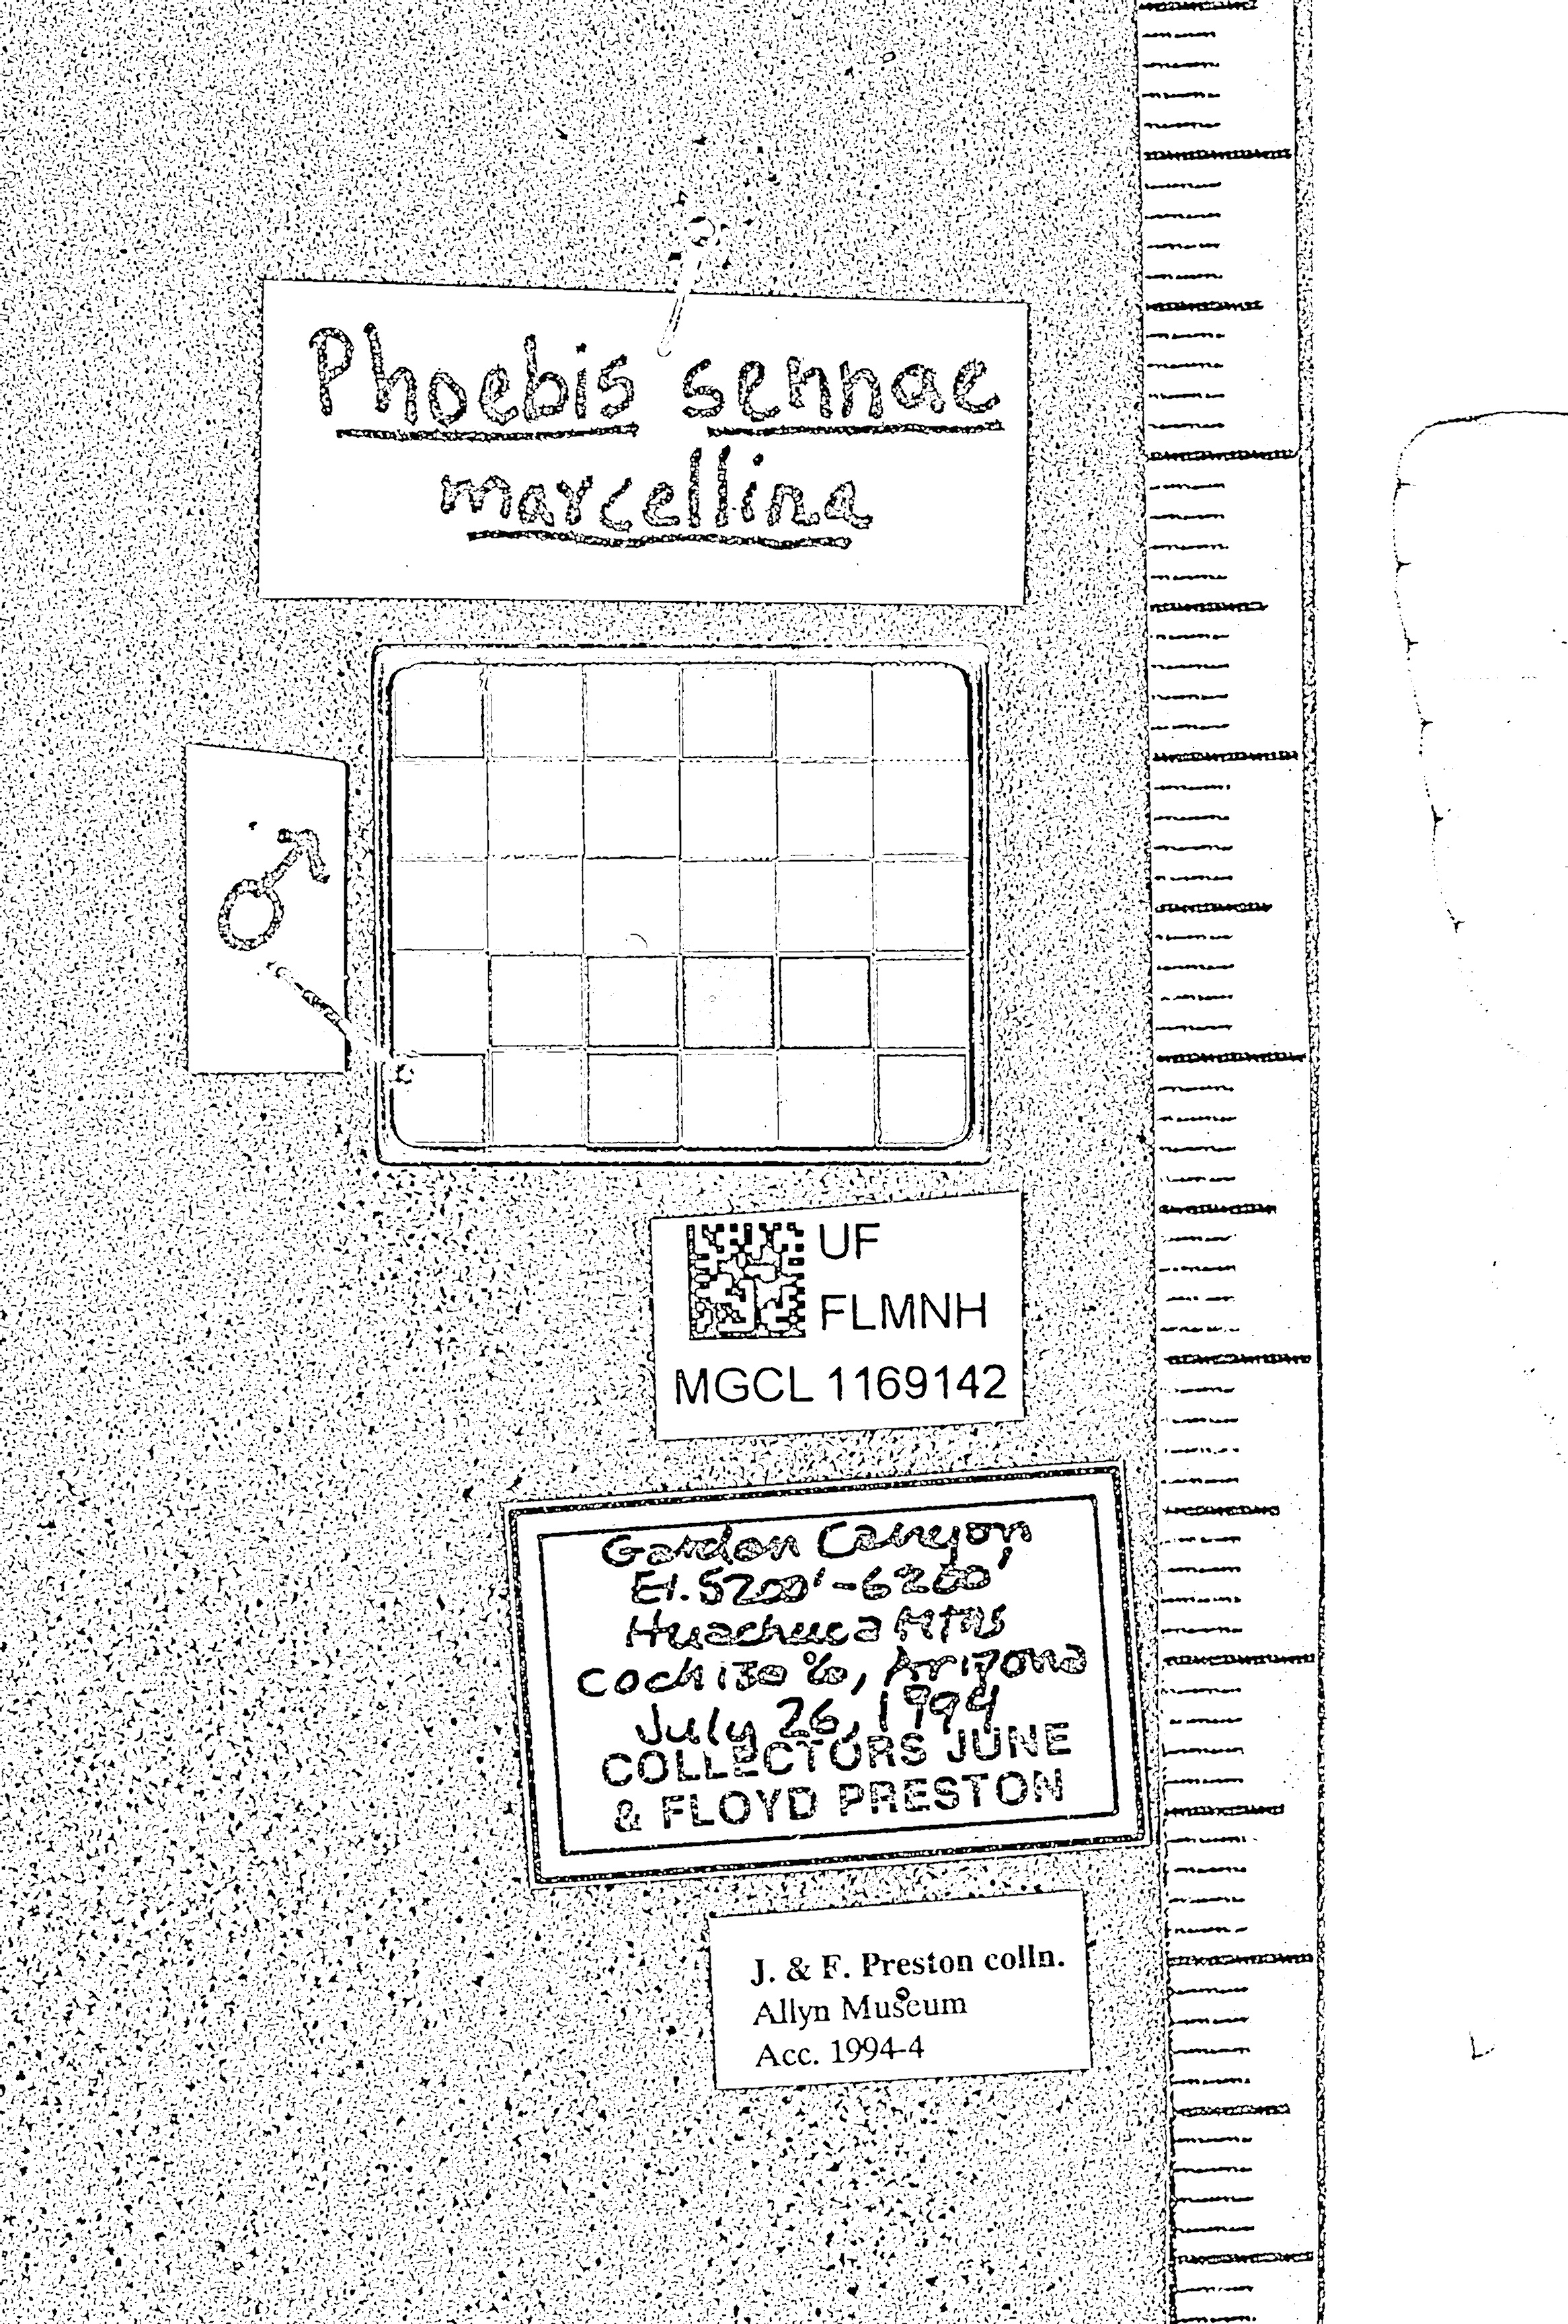 Phoebis sennae
marcellina
♂
UF
FLMNH
MGCL 1169142
Garden Canyon
El. 5200'-6200'
Huachuca Mtns
Cochise Co, Arizona
July 26, 1994
COLLECTORS JUNE
& FLOYD PRESTON
J. & F. Preston colln.
Allyn Museum
Acc. 1994-4